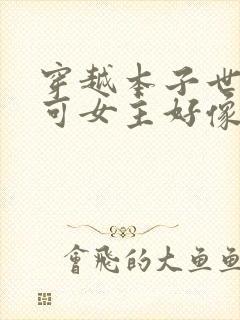 穿越本子世
可女主好像
會飛的大魚鱼